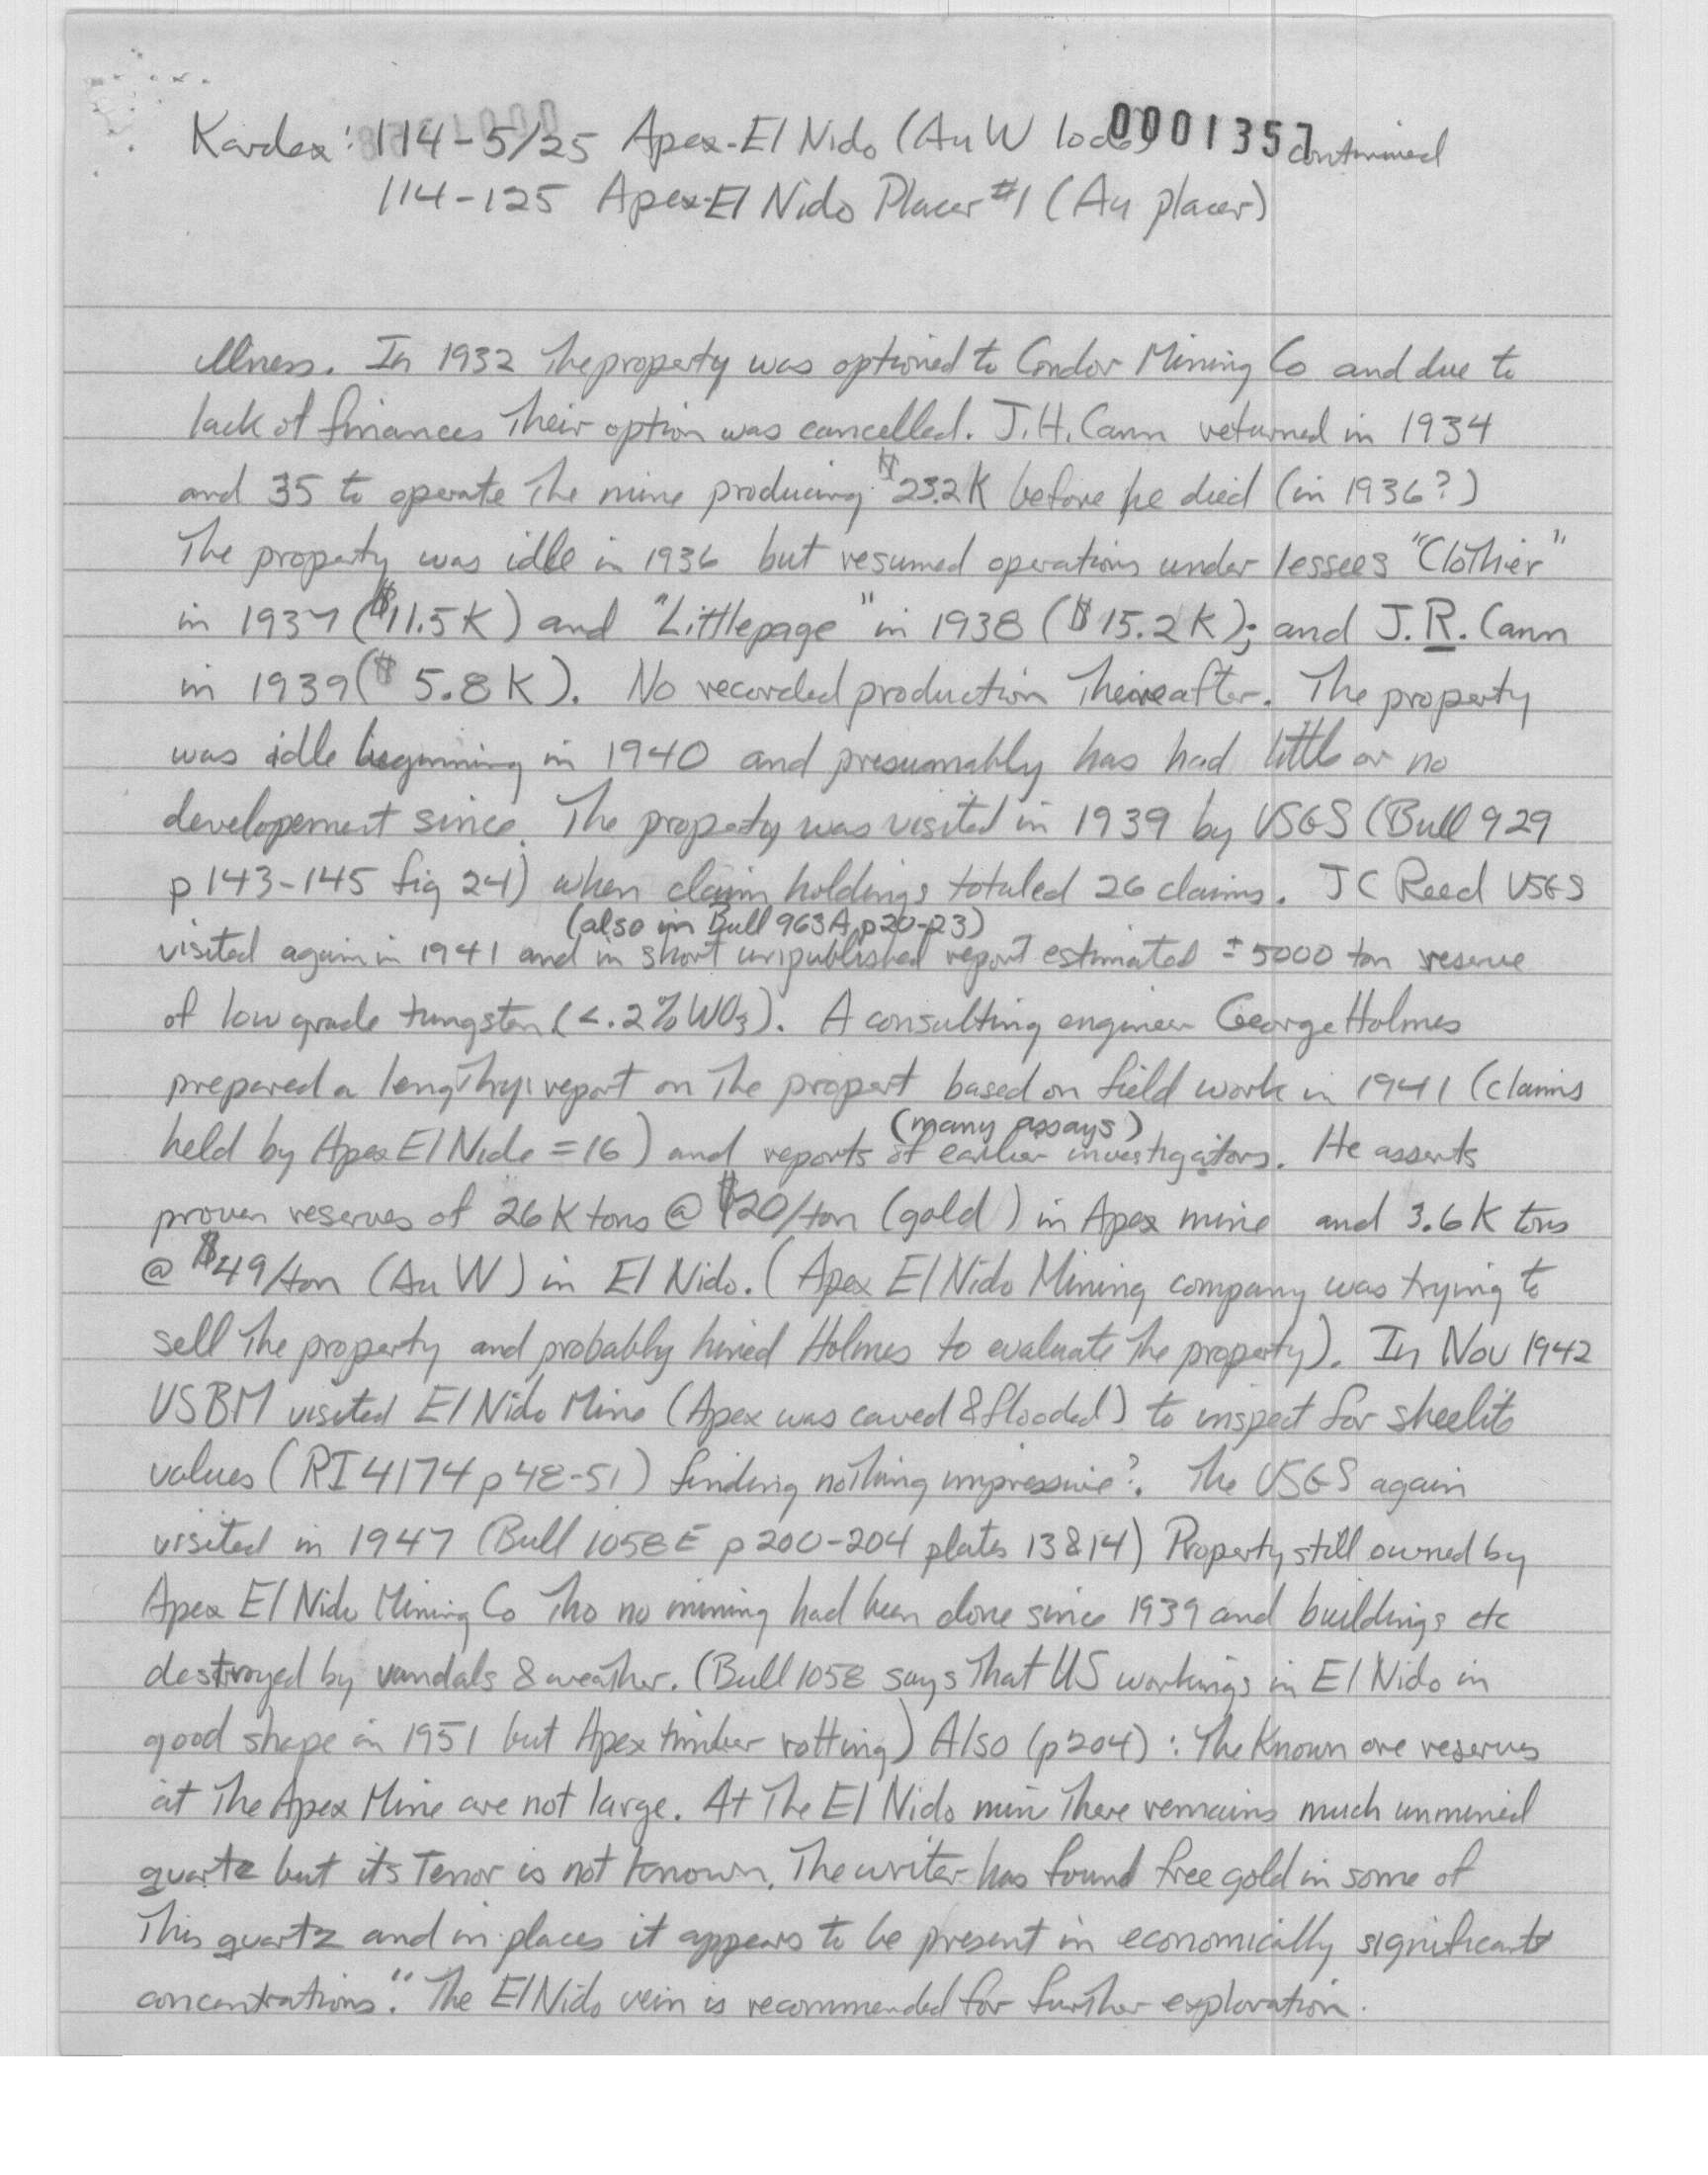 Kardex: 114-5/25 Apex-El Nido (Au W lode) 0001357 continued
114-125 Apex-El Nido Placer #1 (Au placer)
illness. In 1932 The property was optioned to Condor Mining Co and due to
lack of finances Their option was cancelled. J.H. Cann returned in 1934
and 35 to operate The mine producing $23.2K before he died (in 1936?)
The property was idle in 1936 but resumed operations under lessees "Clothier"
in 1937 ($11.5K) and "Littlepage" in 1938 ($15.2K); and J.R. Cann
in 1939 ($5.8K). No recorded production Thereafter. The property
was idle beginning in 1940 and presumably has had little or no
developement since. The property was visited in 1939 by USGS (Bull 929
p 143-145 fig 24) when claim holdings totaled 26 claims. J C Reed USGS
(also in Bull 963A p20-23)
visited again in 1941 and in short unpublished report estimated ±5000 ton reserve
of low grade tungsten (<.2% WO3). A consulting engineer George Holmes
prepared a lengthy report on The propert based on field work in 1941 (claims
(many assays)
held by Apex El Nido = 16) and reports of earlier investigators. He asserts
proven reserves of 26K tons @ $20/ton (gold) in Apex mine and 3.6K tons
@ $49/ton (Au W) in El Nido. (Apex El Nido Mining company was trying to
sell The property and probably hired Holmes to evaluate The property). In Nov 1942
USBM visited El Nido Mine (Apex was caved & flooded) to inspect for sheelite
values (RI 4174 p 48-51) finding nothing impressive?. The USGS again
visited in 1947 (Bull 1058E p 200-204 plates 13&14) Property still owned by
Apex El Nido Mining Co Tho no mining had been done since 1939 and buildings etc
destroyed by vandals & weather. (Bull 1058 says That US workings in El Nido in
good shape in 1951 but Apex timber rotting) Also (p 204): The Known ore reserves
at The Apex Mine are not large. At The El Nido min There remains much unmined
quartz but its Tenor is not known. The writer has found free gold in some of
This quartz and in places it appears to be present in economically significant
concentrations." The El Nido vein is recommended for further exploration.